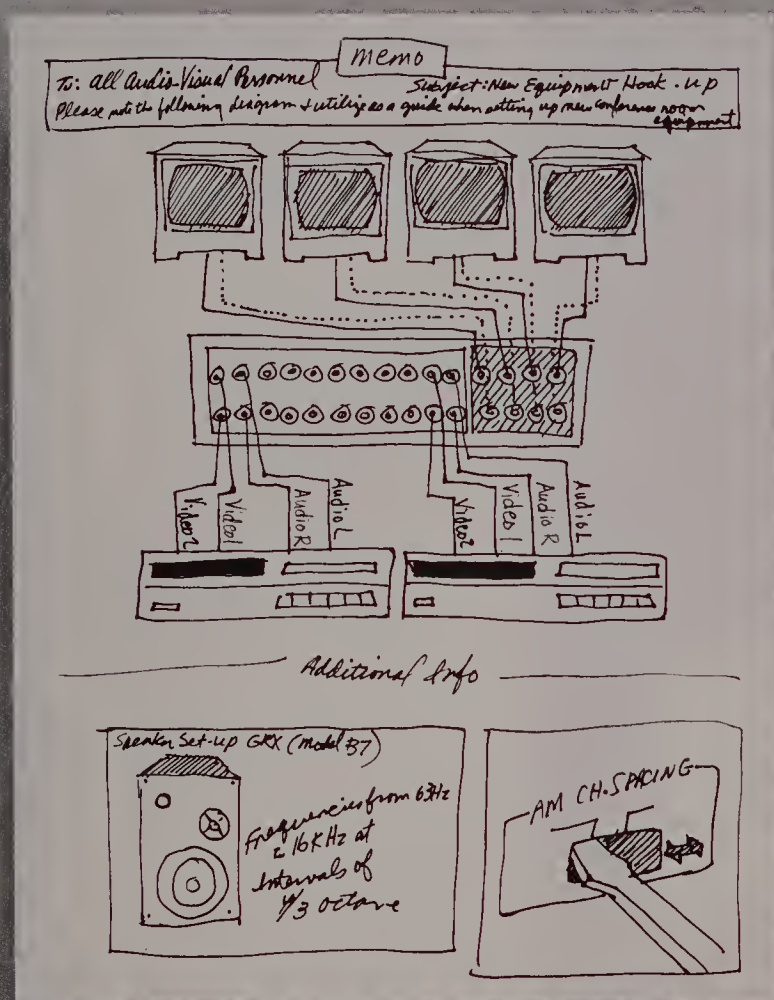 memo
To: All Audio-Visual Personnel
Subject: New Equipment Hook-up
Please note the following diagram + utilize as a guide when setting up new conference room
equipment
Video2
Video1
Audio R
Audio L
Video2
Video1
Audio R
Audio L
Additional Info
Speaker Set-up GRX (Model B7)
Frequencies from 63Hz
16KHz at
Intervals of
1/3 octave
AM CH. SPACING